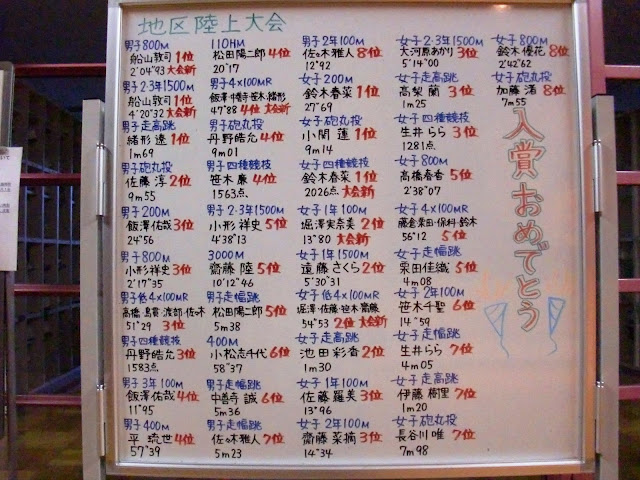 地区陸上大会
男子800M
船山敦司 1位
2'04"93 大会新
男子2・3年1500M
船山敦司 1位
4'20"32 大会新
男子走高跳
緒形 遼 1位
1m69
男子砲丸投
佐藤 淳 2位
9m55
男子200M
飯澤佑哉 3位
24"56
男子800M
小形祥史 3位
2'17"35
男子低4×100MR
高橋・島貫・渡部・佐々木
51"29 3位
男子四種競技
丹野皓允 3位
1583点
男子3年100M
飯澤佑哉 4位
11"95
男子400M
平 琉世 4位
57"39
110HM
松田陽二郎 4位
20"17
男子4×100MR
飯澤・中善寺・笹木・緒形
47"88 4位 大会新
男子砲丸投
丹野皓允 4位
9m01
男子四種競技
笹木 康 4位
1563点
男子2・3年1500M
小形祥史 5位
4'38"13
3000M
齋藤 陸 5位
10'12"46
男子走幅跳
松田陽二郎 5位
5m38
400M
小松志千代 6位
58"37
男子走幅跳
中善寺 誠 6位
5m36
男子走幅跳
佐々木雅人 7位
5m23
男子2年100M
佐々木雅人 8位
12"92
女子200M
鈴木春菜 1位
27"69
女子砲丸投
小関 蓮 1位
9m14
女子四種競技
鈴木春菜 1位
2026点 大会新
女子1年100M
堀澤実奈美 2位
13"80 大会新
女子1年1500M
遠藤さくら 2位
5'30"31
女子低4×100MR
堀澤・佐藤・笹木・齋藤
54"53 2位 大会新
女子走高跳
池田彩香 2位
1m30
女子1年100M
佐藤羅美 3位
13"96
女子2年100M
齋藤菜摘 3位
14"34
女子2・3年1500M
大河原あかり 3位
5'14"00
女子走高跳
高梨 蘭 3位
1m25
女子四種競技
生井らら 3位
1281点
女子800M
高橋春香 5位
2'38"07
女子4×100MR
藤倉・栗田・保科・鈴木
56"12 5位
女子走幅跳
栗田佳織 5位
4m08
女子2年100M
笹木千聖 6位
14"59
女子走幅跳
生井らら 7位
4m05
女子走高跳
伊藤樹里 7位
1m20
女子砲丸投
長谷川唯 7位
7m98
女子800M
鈴木優花 8位
2'42"62
女子砲丸投
加藤 渚 8位
7m55
入賞おめでとう